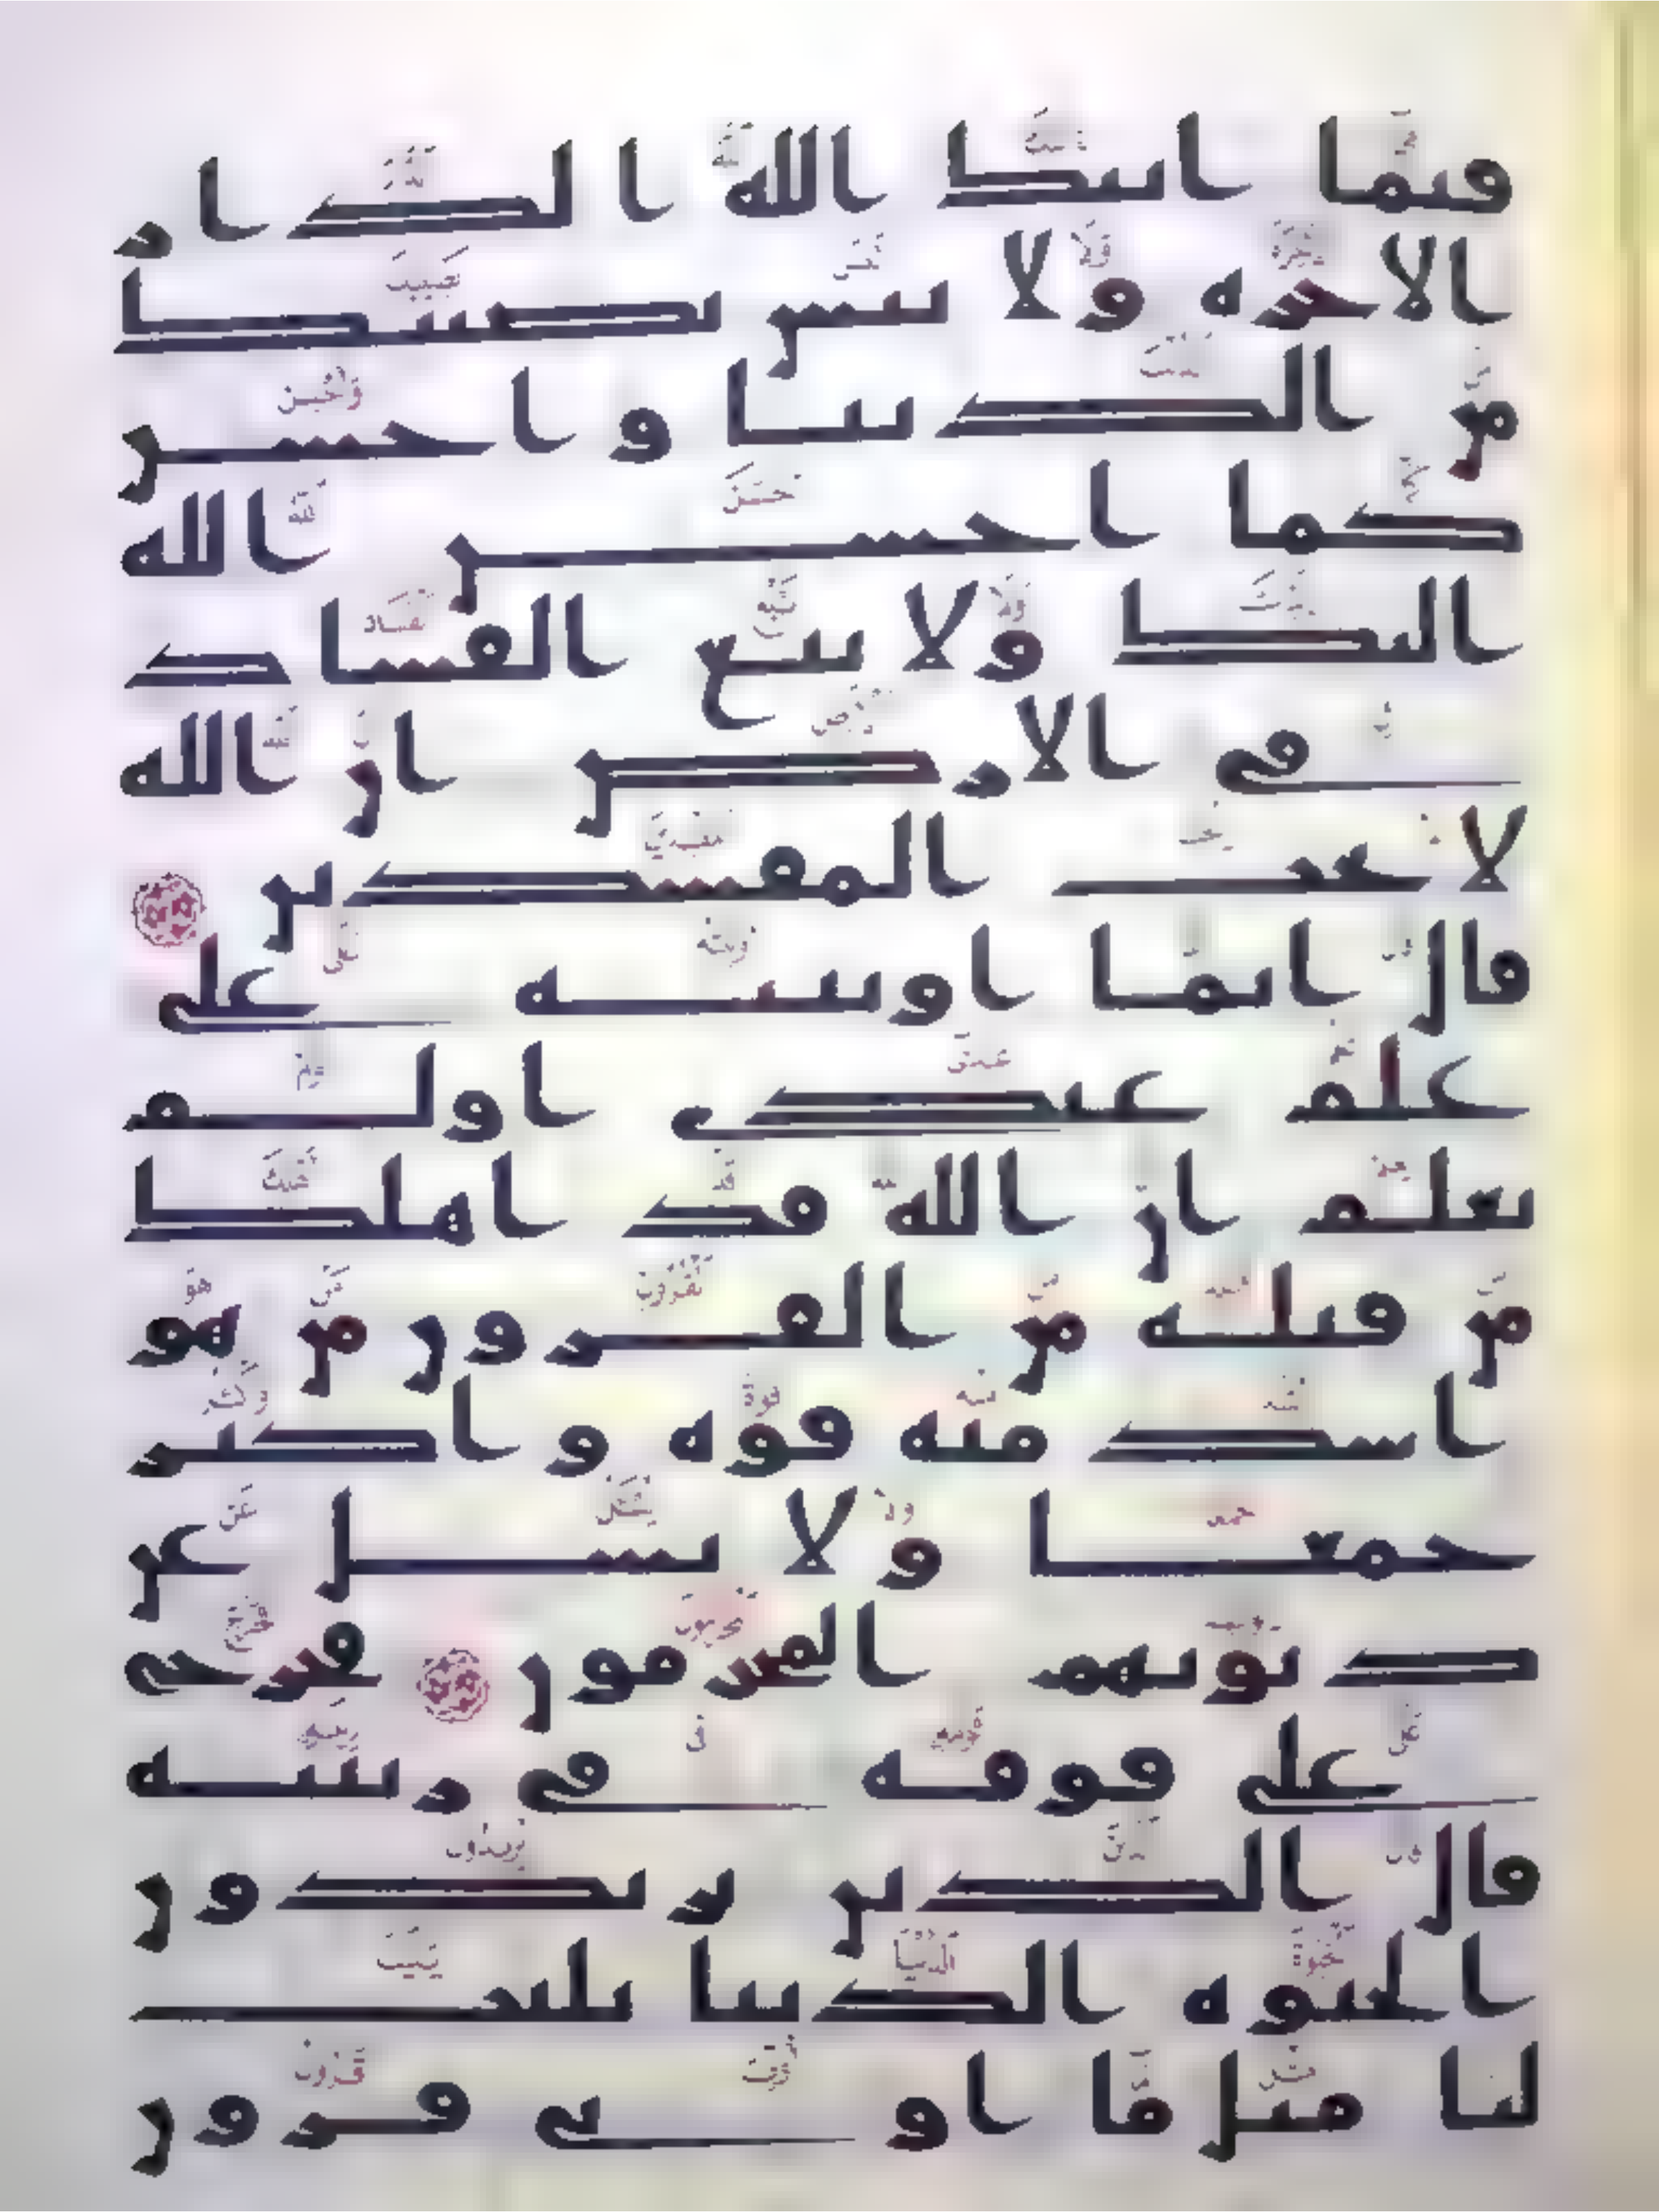 فيما اتيك الله الدار
الاخرة ولا تنس نصيبك
من الدنيا واحسن
كما احسن الله
اليك ولا تبغ الفساد
في الارض ان الله
لا يحب المفسدين
قال انما اوتيته على
علم عندي اولم
يعلم ان الله قد اهلك
من قبله من القرون من هو
اشد منه قوة واكثر
جمعا ولا يسئل عن
ذنوبهم المجرمون فخرج
على قومه في زينته
قال الذين يريدون
الحيوة الدنيا يليت
لنا مثل ما اوتي قرون